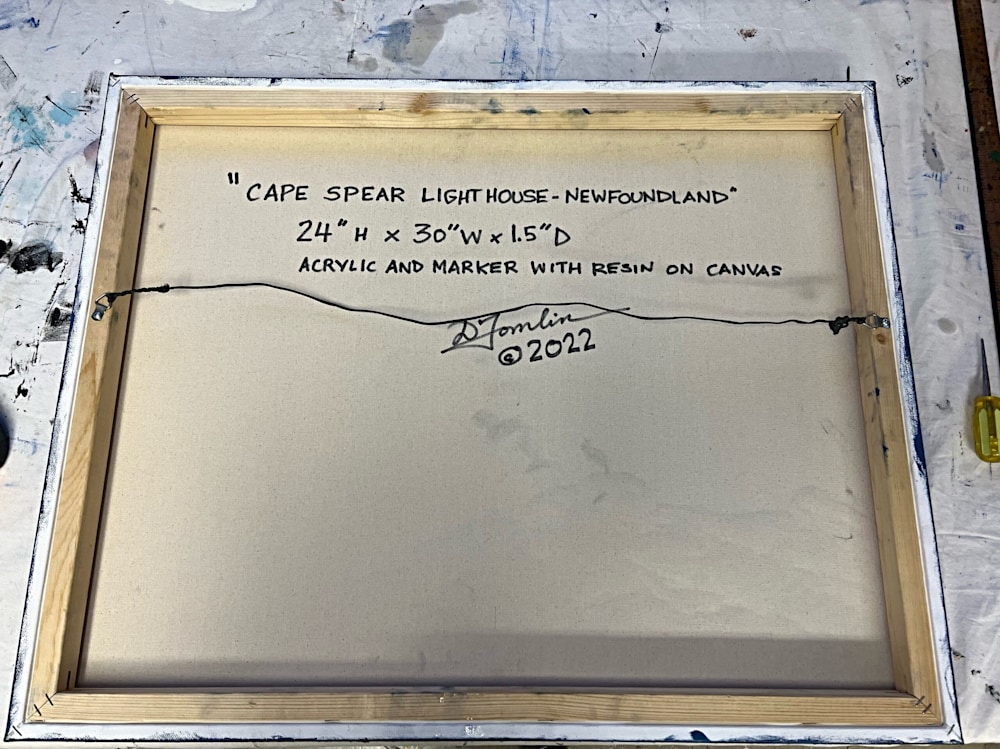 "CAPE SPEAR LIGHTHOUSE-NEWFOUNDLAND"
24"H x 30"W x 1.5"D
ACRYLIC AND MARKER WITH RESIN ON CANVAS
D Tomlin
©2022